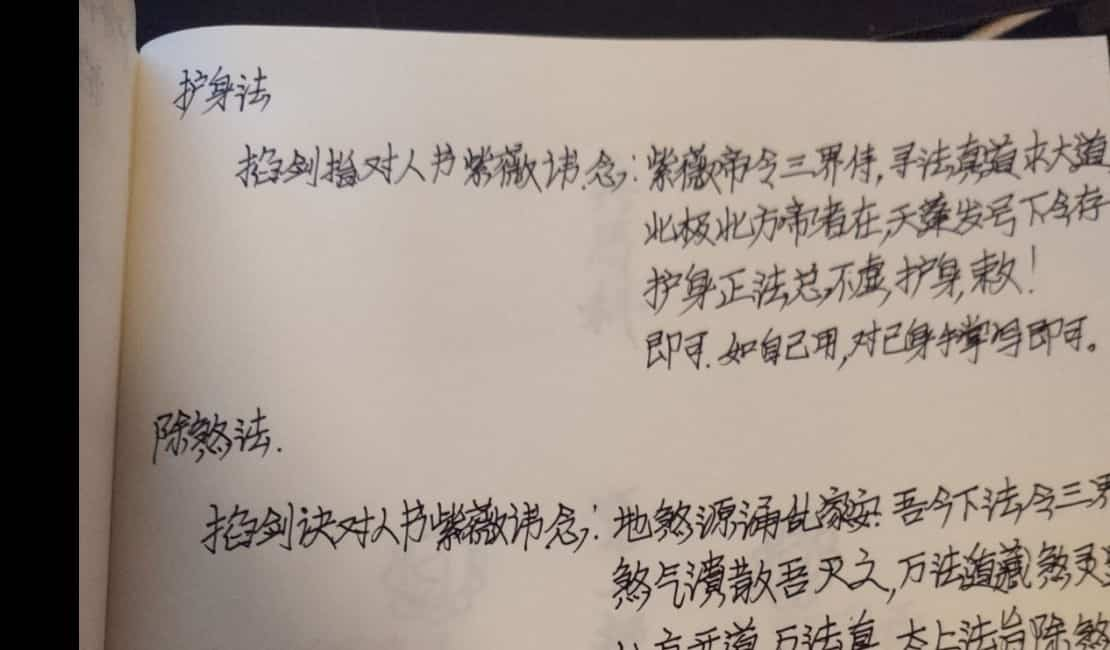 护身法
掐剑指对人书紫薇讳.念:紫薇帝令三界侍,寻法真道求大道
北极北方帝者在,天蓬发号下令存
护身正法总不虚,护身,敕!
即可.如自己用,对己身手掌写即可。
除煞法.
掐剑诀对人书紫薇讳念:地煞源涌乱家安.吾今下法令三界
煞气溃散吾灭之,万法道藏煞灵
方开道,万法真,太上法旨除煞